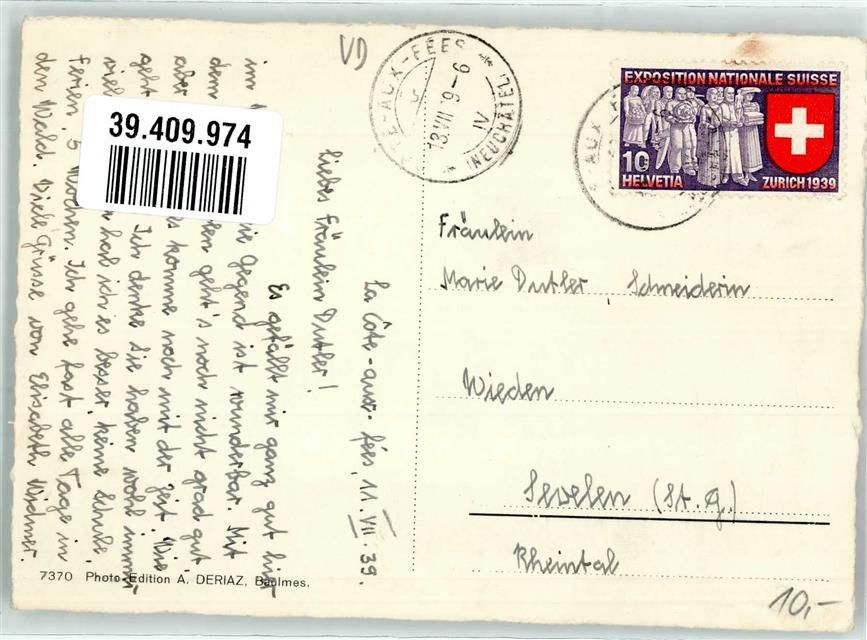 La Côte-aux-fées, 11. VII. 39.
Liebes Fräulein Dutler!
Es gefällt mir ganz gut hier
in
die Gegend ist wunderbar. Mit
dem
geht's noch nicht grad gut,
aber
komme noch mit der Zeit. Wie
geht
Ich denke Sie haben wohl immer
viel
hab ich es besser, keine Schule,
Ferien, 5 Wochen. Ich gehe fast alle Tage in
den Wald. Viele Grüsse von Elisabeth Widmer.
7370 Photo-Edition A. DERIAZ, Baulmes.
39.409.974
VD
-AUX-FÉES
(NEUCHÂTEL)
EXPOSITION NATIONALE SUISSE
10
HELVETIA ZURICH 1939
Fräulein
Marie Dutler, Schneiderin
Wieden
Sevelen (St. G.)
Rheintal
10,-